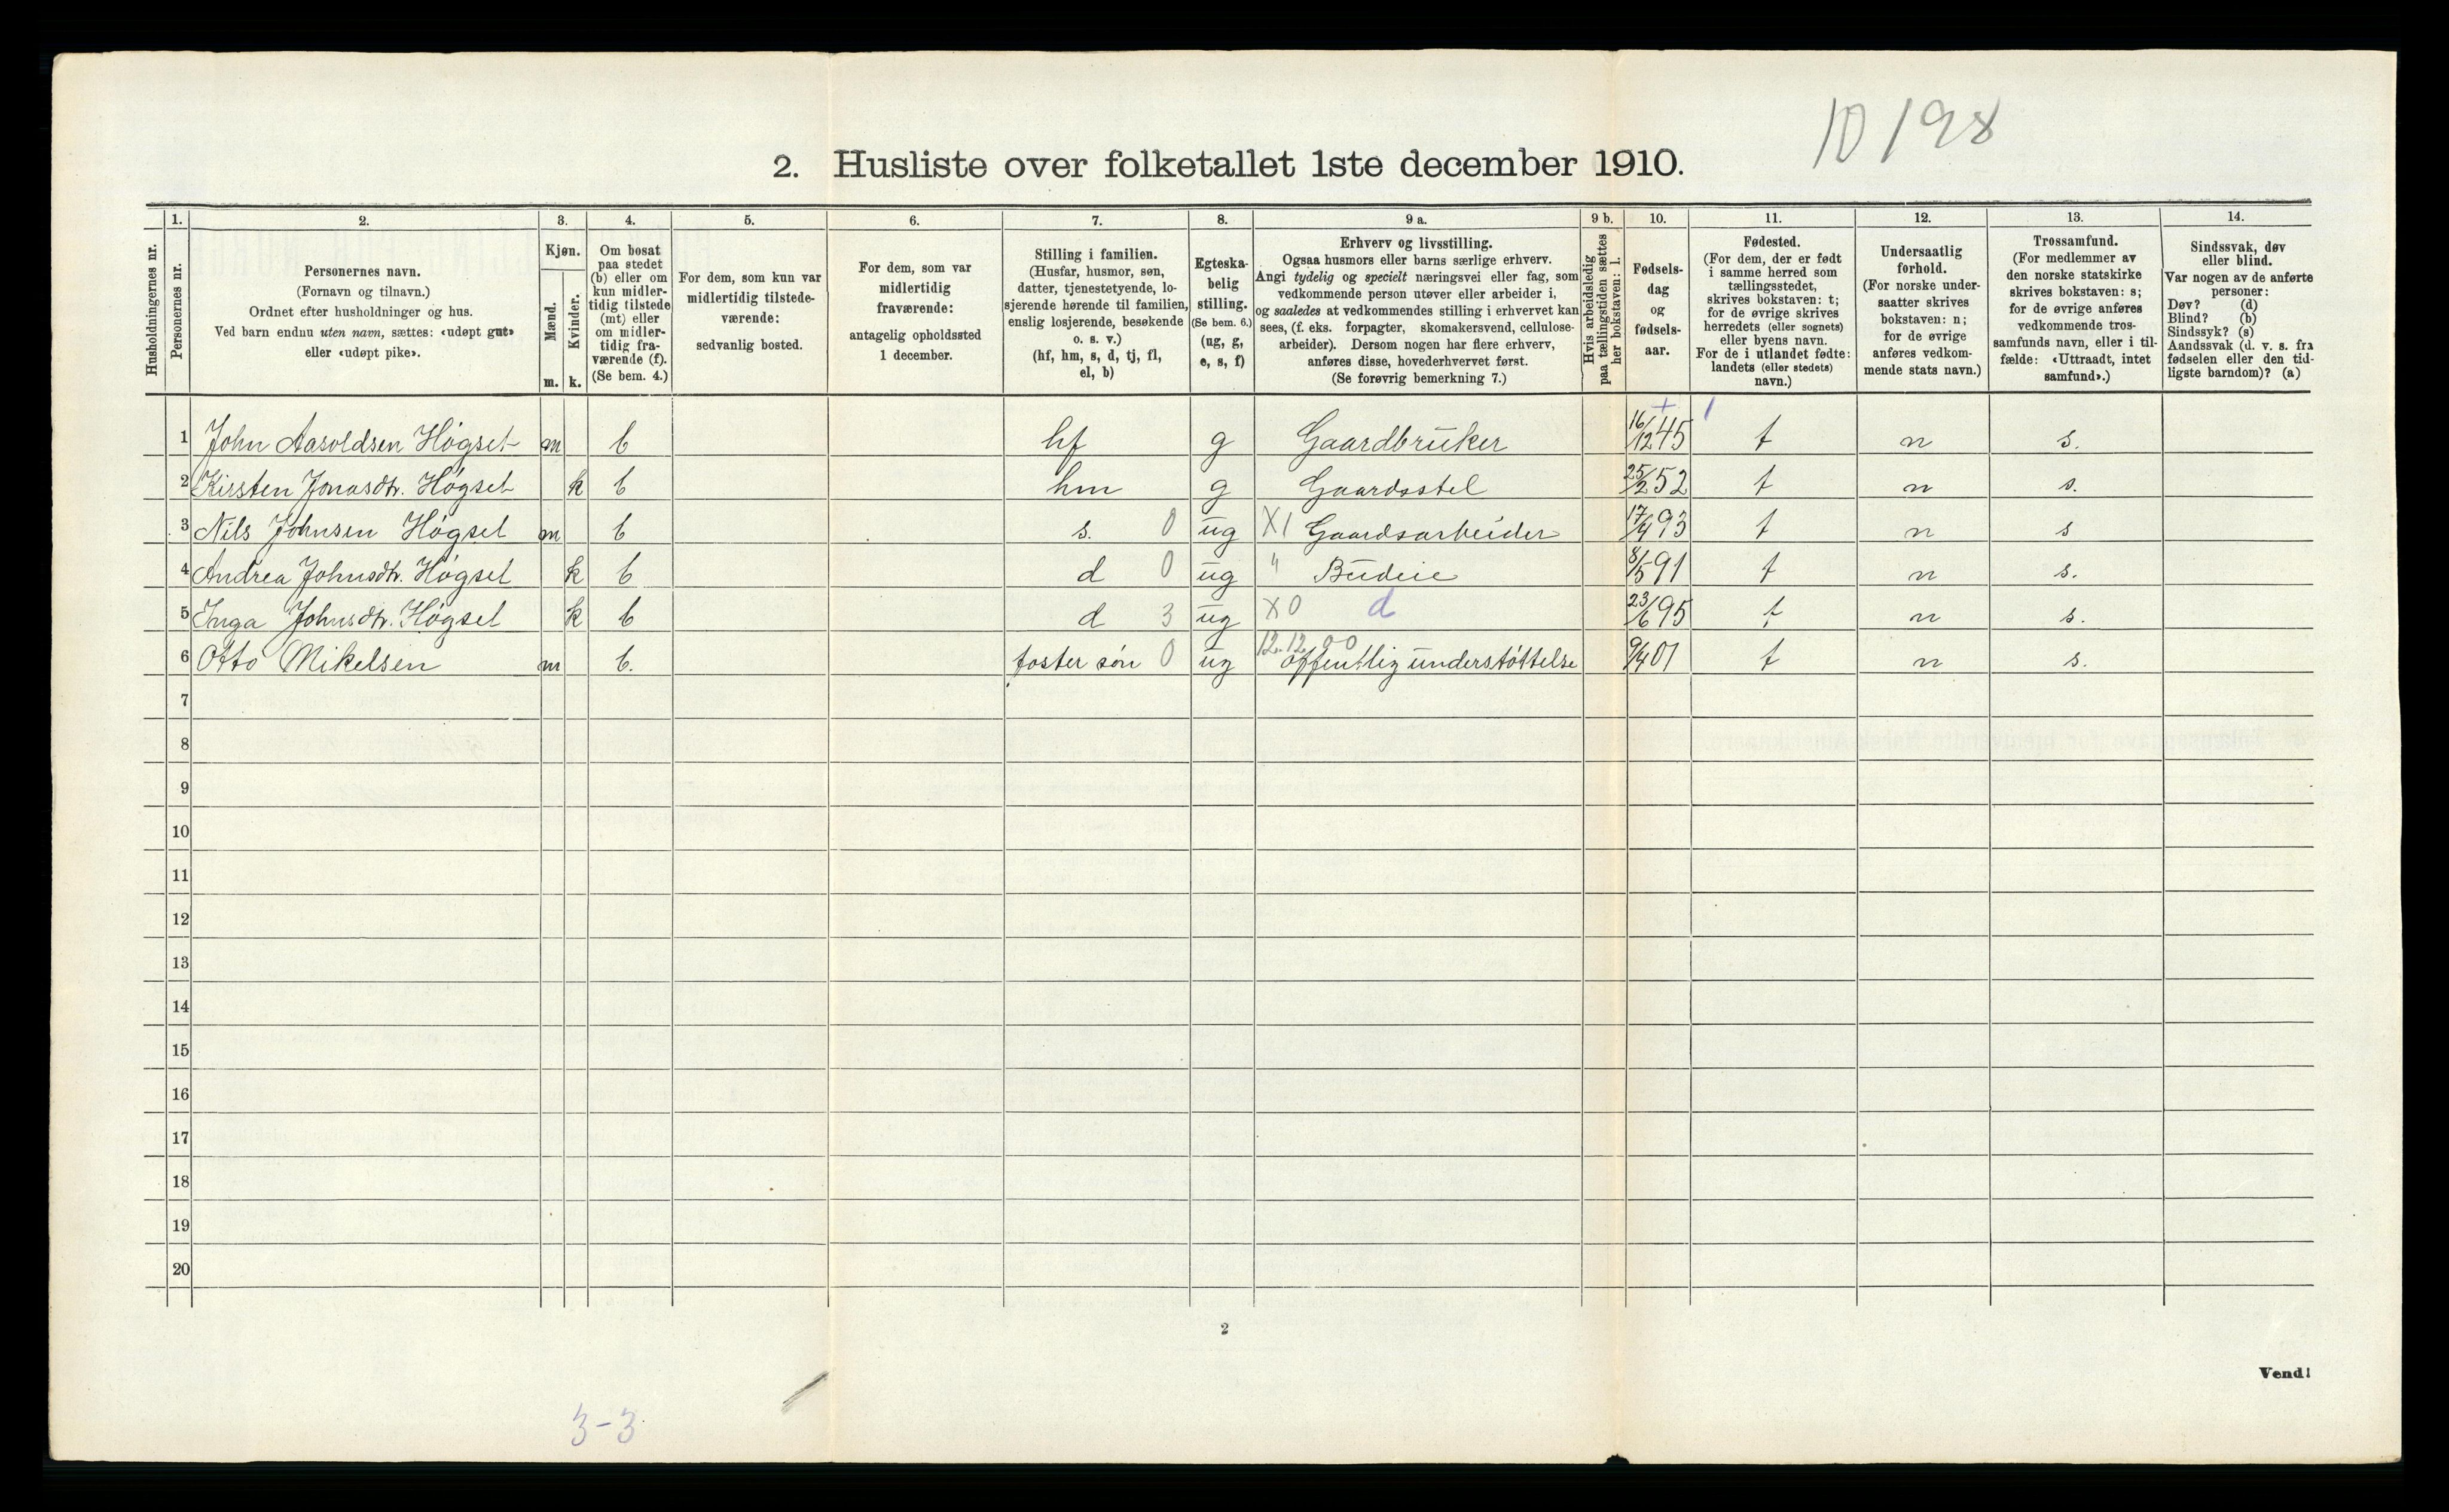 10198
2. Husliste over folketallet 1ste december 1910.
Husholdningernes nr.
1. Personernes nr.
2. Personernes navn.
(Fornavn og tilnavn.)
Ordnet efter husholdninger og hus.
Ved barn endnu uten navn, sættes: «udøpt gut»
eller «udøpt pike».
3. Kjøn.
Mænd. m.
Kvinder. k.
4. Om bosat
paa stedet
(b) eller om
kun midler-
tidig tilstede
(mt) eller
om midler-
tidig fra-
værende (f).
(Se bem. 4.)
5. For dem, som kun var
midlertidig tilstede-
værende:
sedvanlig bosted.
6. For dem, som var
midlertidig
fraværende:
antagelig opholdssted
1 december.
7. Stilling i familien.
(Husfar, husmor, søn,
datter, tjenestetyende, lo-
sjerende hørende til familien,
enslig losjerende, besøkende
o. s. v.)
(hf, hm, s, d, tj, fl,
el, b)
8. Egteska-
belig
stilling.
(Se bem. 6.)
(ug, g,
e, s, f)
9 a. Erhverv og livsstilling.
Ogsaa husmors eller barns særlige erhverv.
Angi tydelig og specielt næringsvei eller fag, som
vedkommende person utøver eller arbeider i,
og saaledes at vedkommendes stilling i erhvervet kan
sees, (f. eks. forpagter, skomakersvend, cellulose-
arbeider). Dersom nogen har flere erhverv,
anføres disse, hovederhvervet først.
(Se forøvrig bemerkning 7.)
9 b. Hvis arbeidsledig
paa tællingstiden sættes
her bokstaven: l.
10. Fødsels-
dag
og
fødsels-
aar.
11. Fødested.
(For dem, der er født
i samme herred som
tællingsstedet,
skrives bokstaven: t;
for de øvrige skrives
herredets (eller sognets)
eller byens navn.
For de i utlandet fødte:
landets (eller stedets)
navn.)
12. Undersaatlig
forhold.
(For norske under-
saatter skrives
bokstaven: n;
for de øvrige
anføres vedkom-
mende stats navn.)
13. Trossamfund.
(For medlemmer av
den norske statskirke
skrives bokstaven: s;
for de øvrige anføres
vedkommende tros-
samfunds navn, eller i til-
fælde: «Uttraadt, intet
samfund».)
14. Sindssvak, døv
eller blind.
Var nogen av de anførte
personer:
Døv? (d)
Blind? (b)
Sindssyk? (s)
Aandssvak (d. v. s. fra
fødselen eller den tid-
ligste barndom)? (a)
1 John Aaroldsen Høgset m b hf g Gaardbruker 16/12 45 t n s.
2 Kirsten Jonasdtr. Høgset k b hm g Gaardsstel 25/2 52 t n s.
3 Nils Johnsen Høgset m b s. 0 ug X1 Gaardsarbeider 17/4 93 t n s
4 Andrea Johnsdtr. Høgset k b d 0 ug " Budeie 8/5 91 t n s.
5 Inga Johnsdtr. Høgset k b d 3 ug X0 d 23/6 95 t n s.
6 Otto Mikelsen m b. foster søn 0 ug 12.12.00 offentlig understøttelse 9/4 01 t n s.
7
8
9
10
11
12
13
14
15
16
17
18
19
20
2
Vend!
3-3